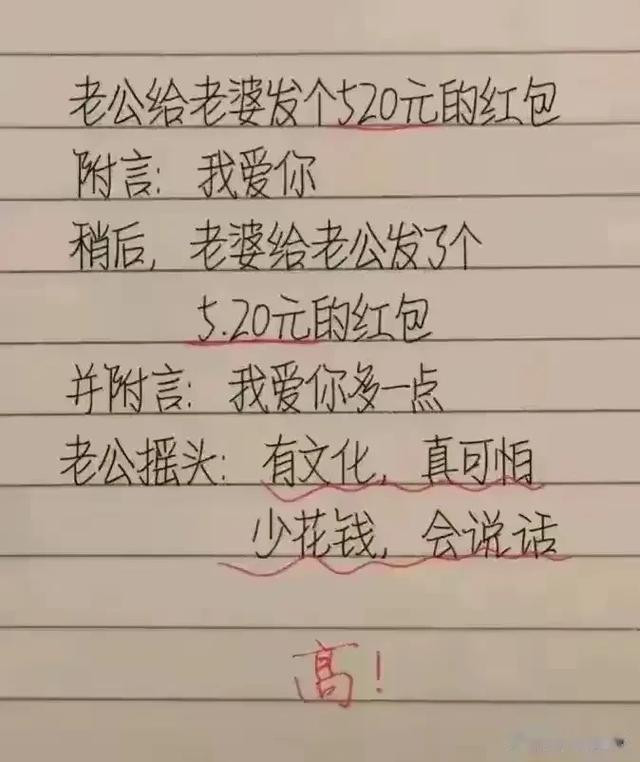 老公给老婆发个520元的红包
附言：我爱你
稍后，老婆给老公发了个
5.20元的红包
并附言：我爱你多一点
老公摇头：有文化，真可怕
少花钱，会说话
高！